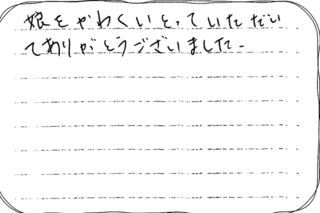 娘をかわくいとっていただい
てありがとうございました。